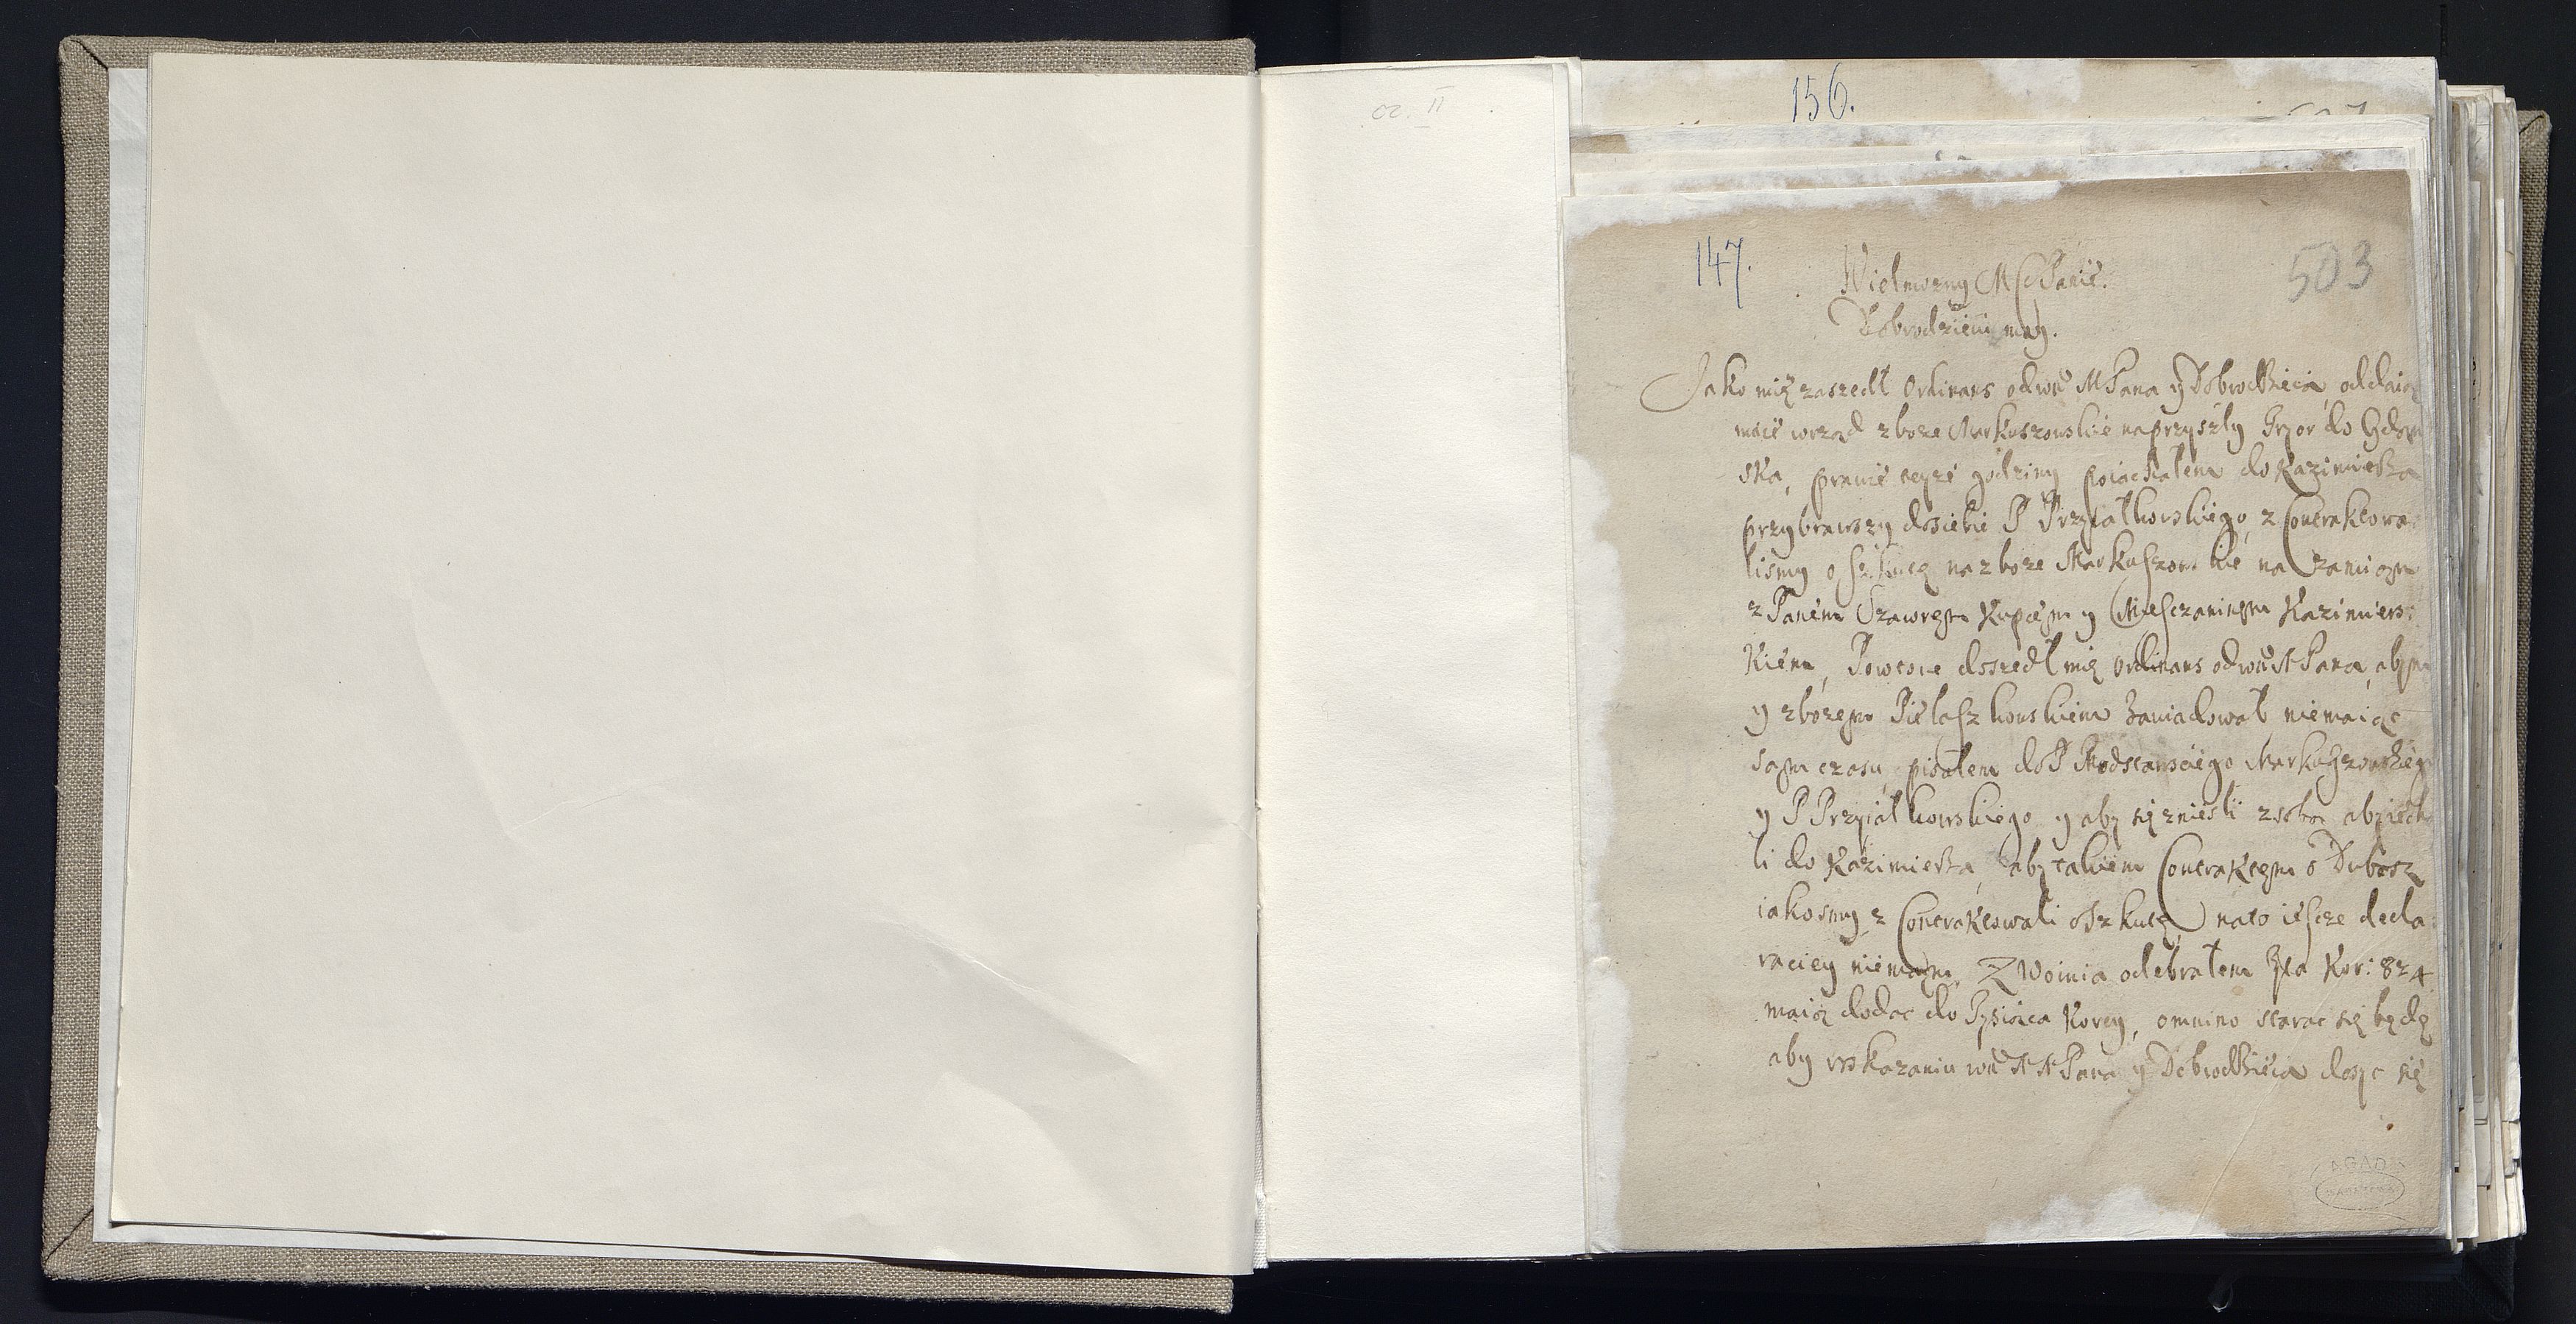 156.
147.
503
Wielmozny Mſci Panie.
Dobrodzieiu moy.
Jako mię zaszedł Ordinans od wm̃ MPana y Dobrodzieia, oddaiąc
mnie wrząd zboze Markuszowskie na przyszły Fryor do Gdan
ska, prawie teyze godziny poiachałem do Kazimierza
przybrawszy do siebie P Przyiałkowskiego, z Contraktowa
lismy o szkutę na zboze Markuſzowskie na zamiom
z Panem Szawrem Kupcem y Mieſczaninem Kazimiers:
kiem, Powtore doszedł mię Ordinans od wm̃ M Pana, abym
y zbozem Pielaſzkowskiem zawiadował nie maiąc
sam czasu, pisałem do P Podstarosciego Markuszowskiego
y P Przyiałkowskiego y aby się zniesli z sobą aby iecha
li do Kazimierza, aby takiem Contraktem o Dubasz
iakosmy z Contraktowali o szkutę, na to ieſcze decla
raciey niemam. Z Woinia odebrałem Zyta Kor: 824
maią dodac do Tysiąca Korcy, omnino starac się będę
aby rozkazaniu wm̃ M M Pana y Dobrodzieia dosyc się
AGAD